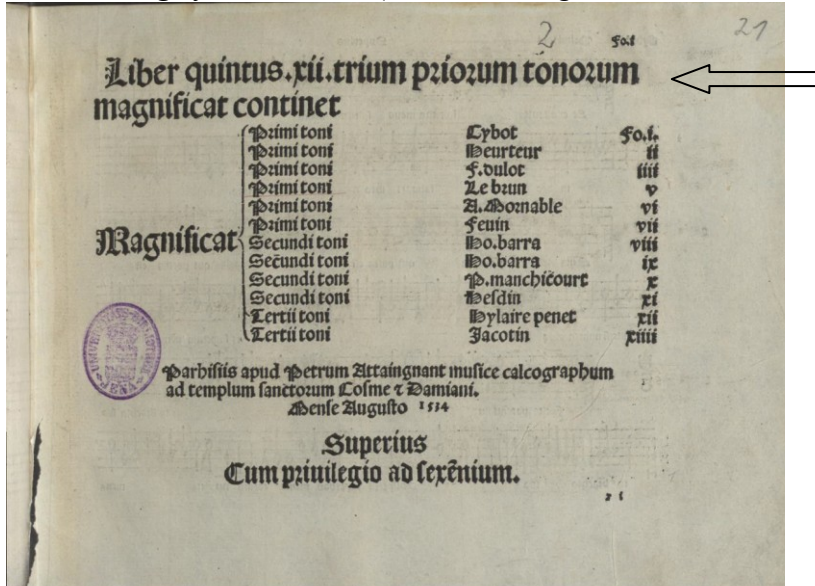 2 fo.i 21
Liber quintus.xii.trium priorum tonorum
magnificat continet
Primi toni Cybot Fo.i.
Primi toni Heurteur ii
Primi toni F.dulot iiii
Primi toni Le brun v
Primi toni A.Mornable vi
Primi toni Fevin vii
Magnificat
Secundi toni Ho.barra viii
Secūdi toni Ho.barra ix
Secundi toni P.manchicourt x
Secundi toni Hesdin xi
Tertii toni Hylaire penet xii
Tertii toni Jacotin xiiii
Parhisiis apud Petrum Attaingnant musice calcographum
ad templum sanctorum Cosme ⁊ Damiani.
Mense Augusto 1534
Superius
Cum priuilegio ad sexēnium.